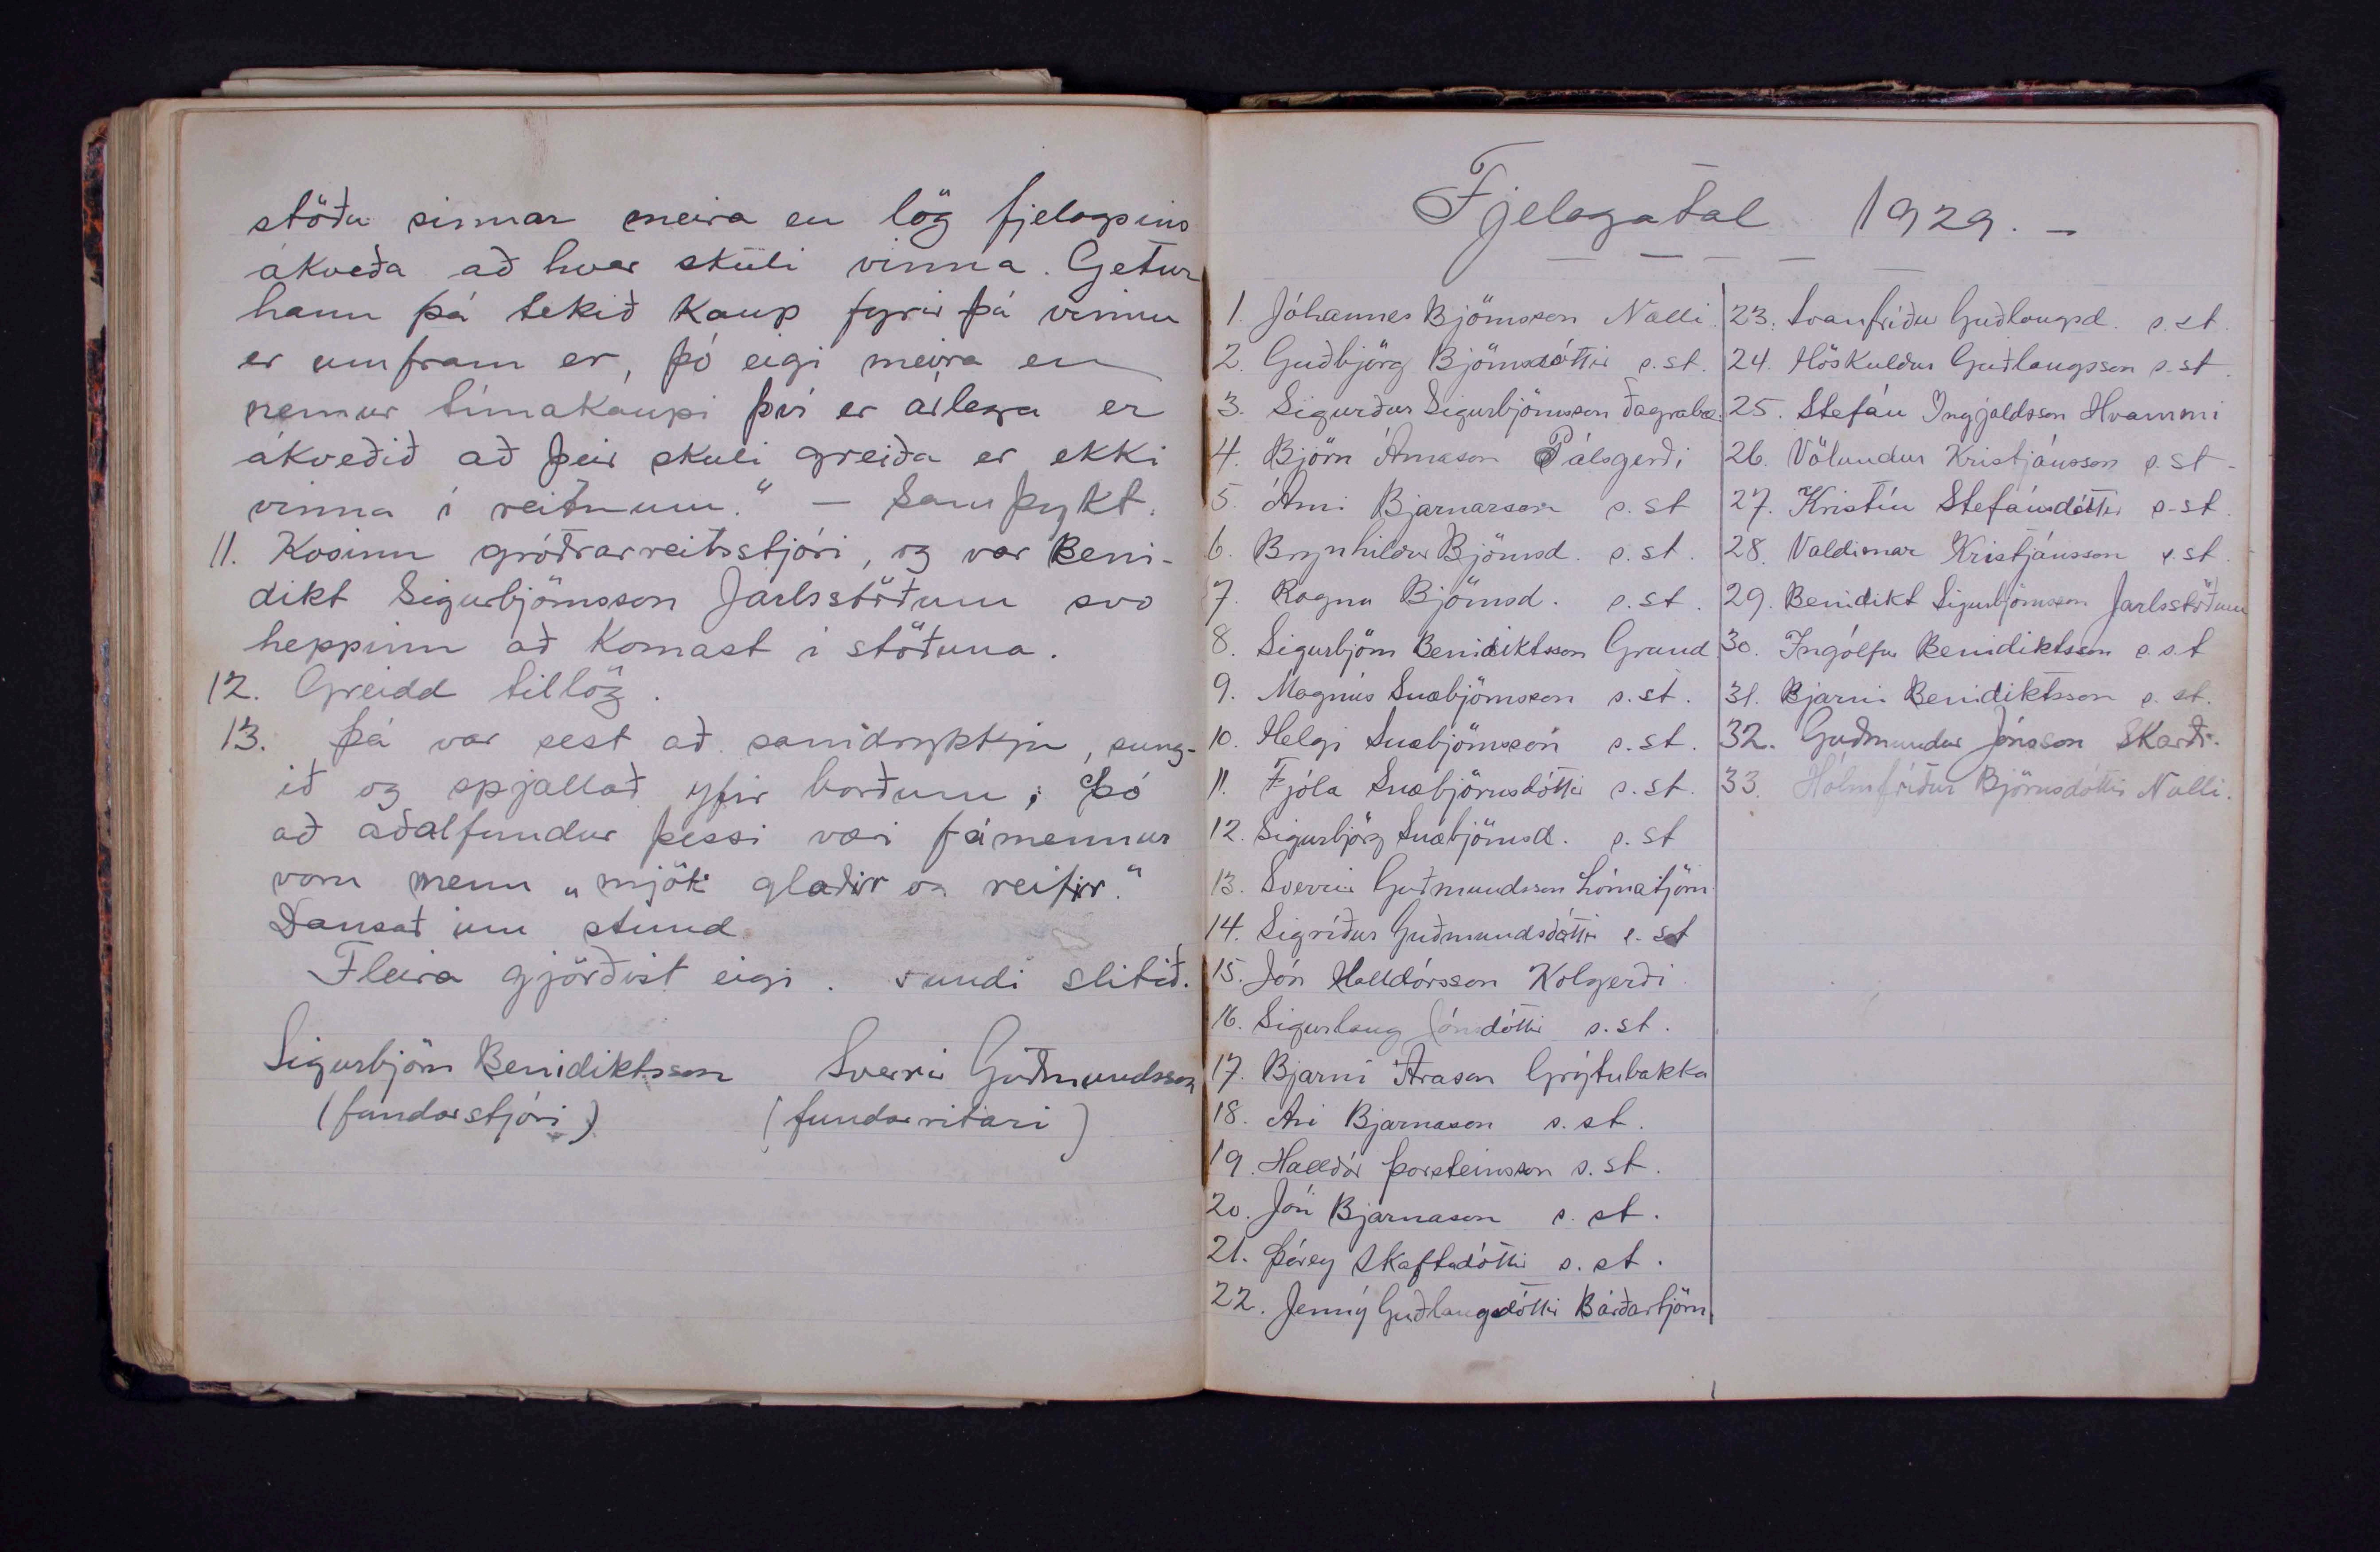 stöðu sinnar meira en lög fjelagsins
ákveða að hver skuli vinna. Getur
hann þá tekið kaup fyrir þá vinnu
er umfram er, þó eigi meira en
nemur tímakaupi því er árlega er
ákveðið að þeir skuli greiða er ekki
vinna í reitnum." — Samþykt.
11. Kosinn gróðrarreitsstjóri, og var Beni-
dikt Sigurbjörnsson Jarlsstöðum svo
heppinn að komast í stöðuna.
12. Greidd tillög.
13. Þá var sest að samdrykkju, sung-
ið og spjallað yfir borðum; Þó
að aðalfundur þessi væri fámennur
voru menn „mjök glaðir ok reifir."
Dansað um stund
Fleira gjörðist eigi. Fundi slitið.
Sigurbjörn Benidiktsson Sverrir Guðmundsson
(fundarstjóri) (fundarritari)
Fjelagatal 1929. –
1. Jóhannes Björnsson Nolli.
2. Guðbjörg Björnsdóttir s.st.
3. Sigurður Sigurbjörnsson Fagrabæ.
4. Björn Árnason Pálsgerði
5. Árni Bjarnarson s.st
6. Brynhildur Björnsd. s.st.
7. Ragna Björnsd. s.st.
8. Sigurbjörn Benidiktsson Grund
9. Magnús Snæbjörnsson s.st.
10. Helgi Snæbjörnsson s.st.
11. Fjóla Snæbjörnsdóttir s.st.
12. Sigurbjörg Snæbjörnsd. s.st
13. Sverrir Guðmundsson Lómatjörn
14. Sigríður Guðmundsdóttir s.st
15. Jón Halldórsson Kolgerði
16. Sigurlaug Jónsdóttir s.st.
17. Bjarni Arason Grýtubakka
18. Ari Bjarnason s.st.
19. Halldór Þorsteinsson s.st.
20. Jón Bjarnason s.st.
21. Þórey Skaftadóttir s.st.
22. Jenný Guðlaugsdóttir Bárðartjörn
23. Svanfríður Guðlaugsd. s.st.
24. Höskuldur Guðlaugsson s.st.
25. Stefán Ingjaldsson Hvammi
26. Völundur Kristjánsson s.st-
27. Kristín Stefánsdóttir s-st.
28. Valdimar Kristjánsson s.st.
29. Benidikt Sigurbjörnsson Jarlsstöðum
30. Ingólfur Benidiktsson s.s.t
31. Bjarni Benidiktsson s.st.
32. Guðmundur Jónsson Skarði.
33. Hólmfríður Björnsdóttir Nolli.